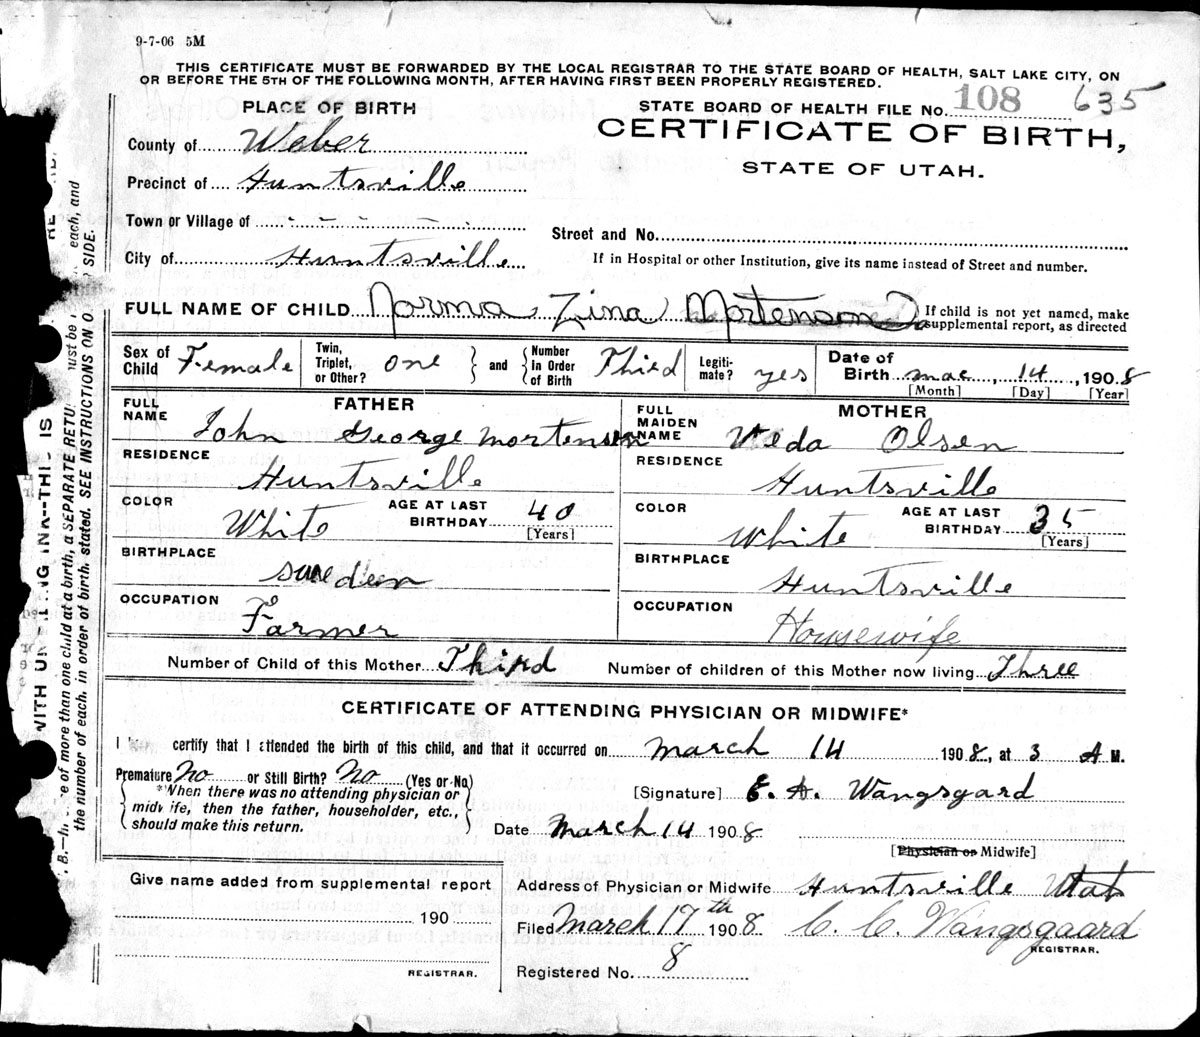 9-7-06 5M
THIS CERTIFICATE MUST BE FORWARDED BY THE LOCAL REGISTRAR TO THE STATE BOARD OF HEALTH, SALT LAKE CITY, ON
OR BEFORE THE 5TH OF THE FOLLOWING MONTH, AFTER HAVING FIRST BEEN PROPERLY REGISTERED.
PLACE OF BIRTH
STATE BOARD OF HEALTH FILE No. 108 635
CERTIFICATE OF BIRTH,
STATE OF UTAH.
County of Weber
Precinct of Huntsville
Town or Village of
Street and No.
City of Huntsville
If in Hospital or other Institution, give its name instead of Street and number.
FULL NAME OF CHILD Norma Zina Mortenson
If child is not yet named, make
supplemental report, as directed
Sex of Child Female Twin, Triplet, or Other? one and Number in Order of Birth Third Legiti-mate? yes Date of Birth mac 14, 1908
[Month] [Day] [Year]
FATHER
MOTHER
FULL NAME John George Mortensen
FULL MAIDEN NAME Veda Olsen
RESIDENCE Huntsville
RESIDENCE Huntsville
COLOR White AGE AT LAST BIRTHDAY 40 [Years]
COLOR White AGE AT LAST BIRTHDAY 35 [Years]
BIRTHPLACE Sweden
BIRTHPLACE Huntsville
OCCUPATION Farmer
OCCUPATION Housewife
Number of Child of this Mother Third Number of children of this Mother now living Three
CERTIFICATE OF ATTENDING PHYSICIAN OR MIDWIFE*
I certify that I attended the birth of this child, and that it occurred on march 14 1908, at 3 A M.
Premature No or Still Birth? No (Yes or No)
*When there was no attending physician or
midwife, then the father, householder, etc.,
should make this return.
[Signature] E. A. Wangsgard
Date March 14 1908
[Physician or Midwife]
Give name added from supplemental report
190
REGISTRAR.
Address of Physician or Midwife Huntsville Utah
Filed March 17th 1908 C. C. Wangsgaard
REGISTRAR.
Registered No. 8
WITH UN NG INK--THIS IS RE
B.--In e of more than one child at a birth, a SEPARATE RETU ust be each, and
the number of each, in order of birth, stated. SEE INSTRUCTIONS ON O SIDE.